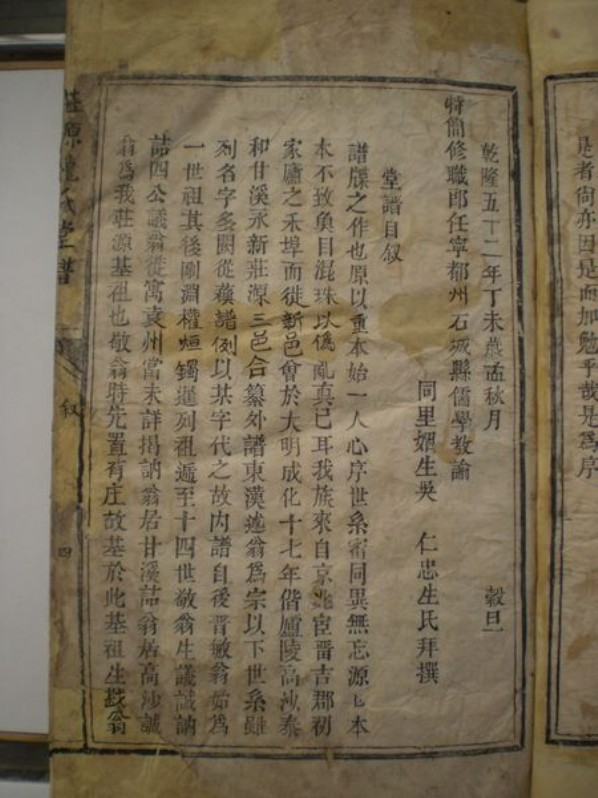 是者尚亦因是而加勉乎哉是爲序
乾隆五十二年丁未歲孟秋月 穀旦
特簡修職郎任寧都州石城縣儒學教諭
同里姻生吳 仁忠生氏拜撰
堂譜自叙
譜牒之作也原以重本始一人心序世系審同異無忘源也本
本不致魚目混珠以僞亂真已耳我族來自京兆宦晋吉郡初
家廬之禾埠而徙新邑會於大明成化十七年偕廬陵高沙泰
和甘溪永新莊源三邑合纂外譜東漢述翁爲宗以下世系雖
列名字多闕從蘓譜例以某字代之故内譜自後晋敏翁始爲
一世祖其後剛淵權烜鐲進列祖遞至十四世敬翁生議誠訥
詰四公議翁從寓袁州當未詳揭訥翁居甘溪詰翁居高沙誠
翁爲我莊源基祖也敬翁時先置有庄故基於此基祖生戩翁
莊源 堂譜
叙
四